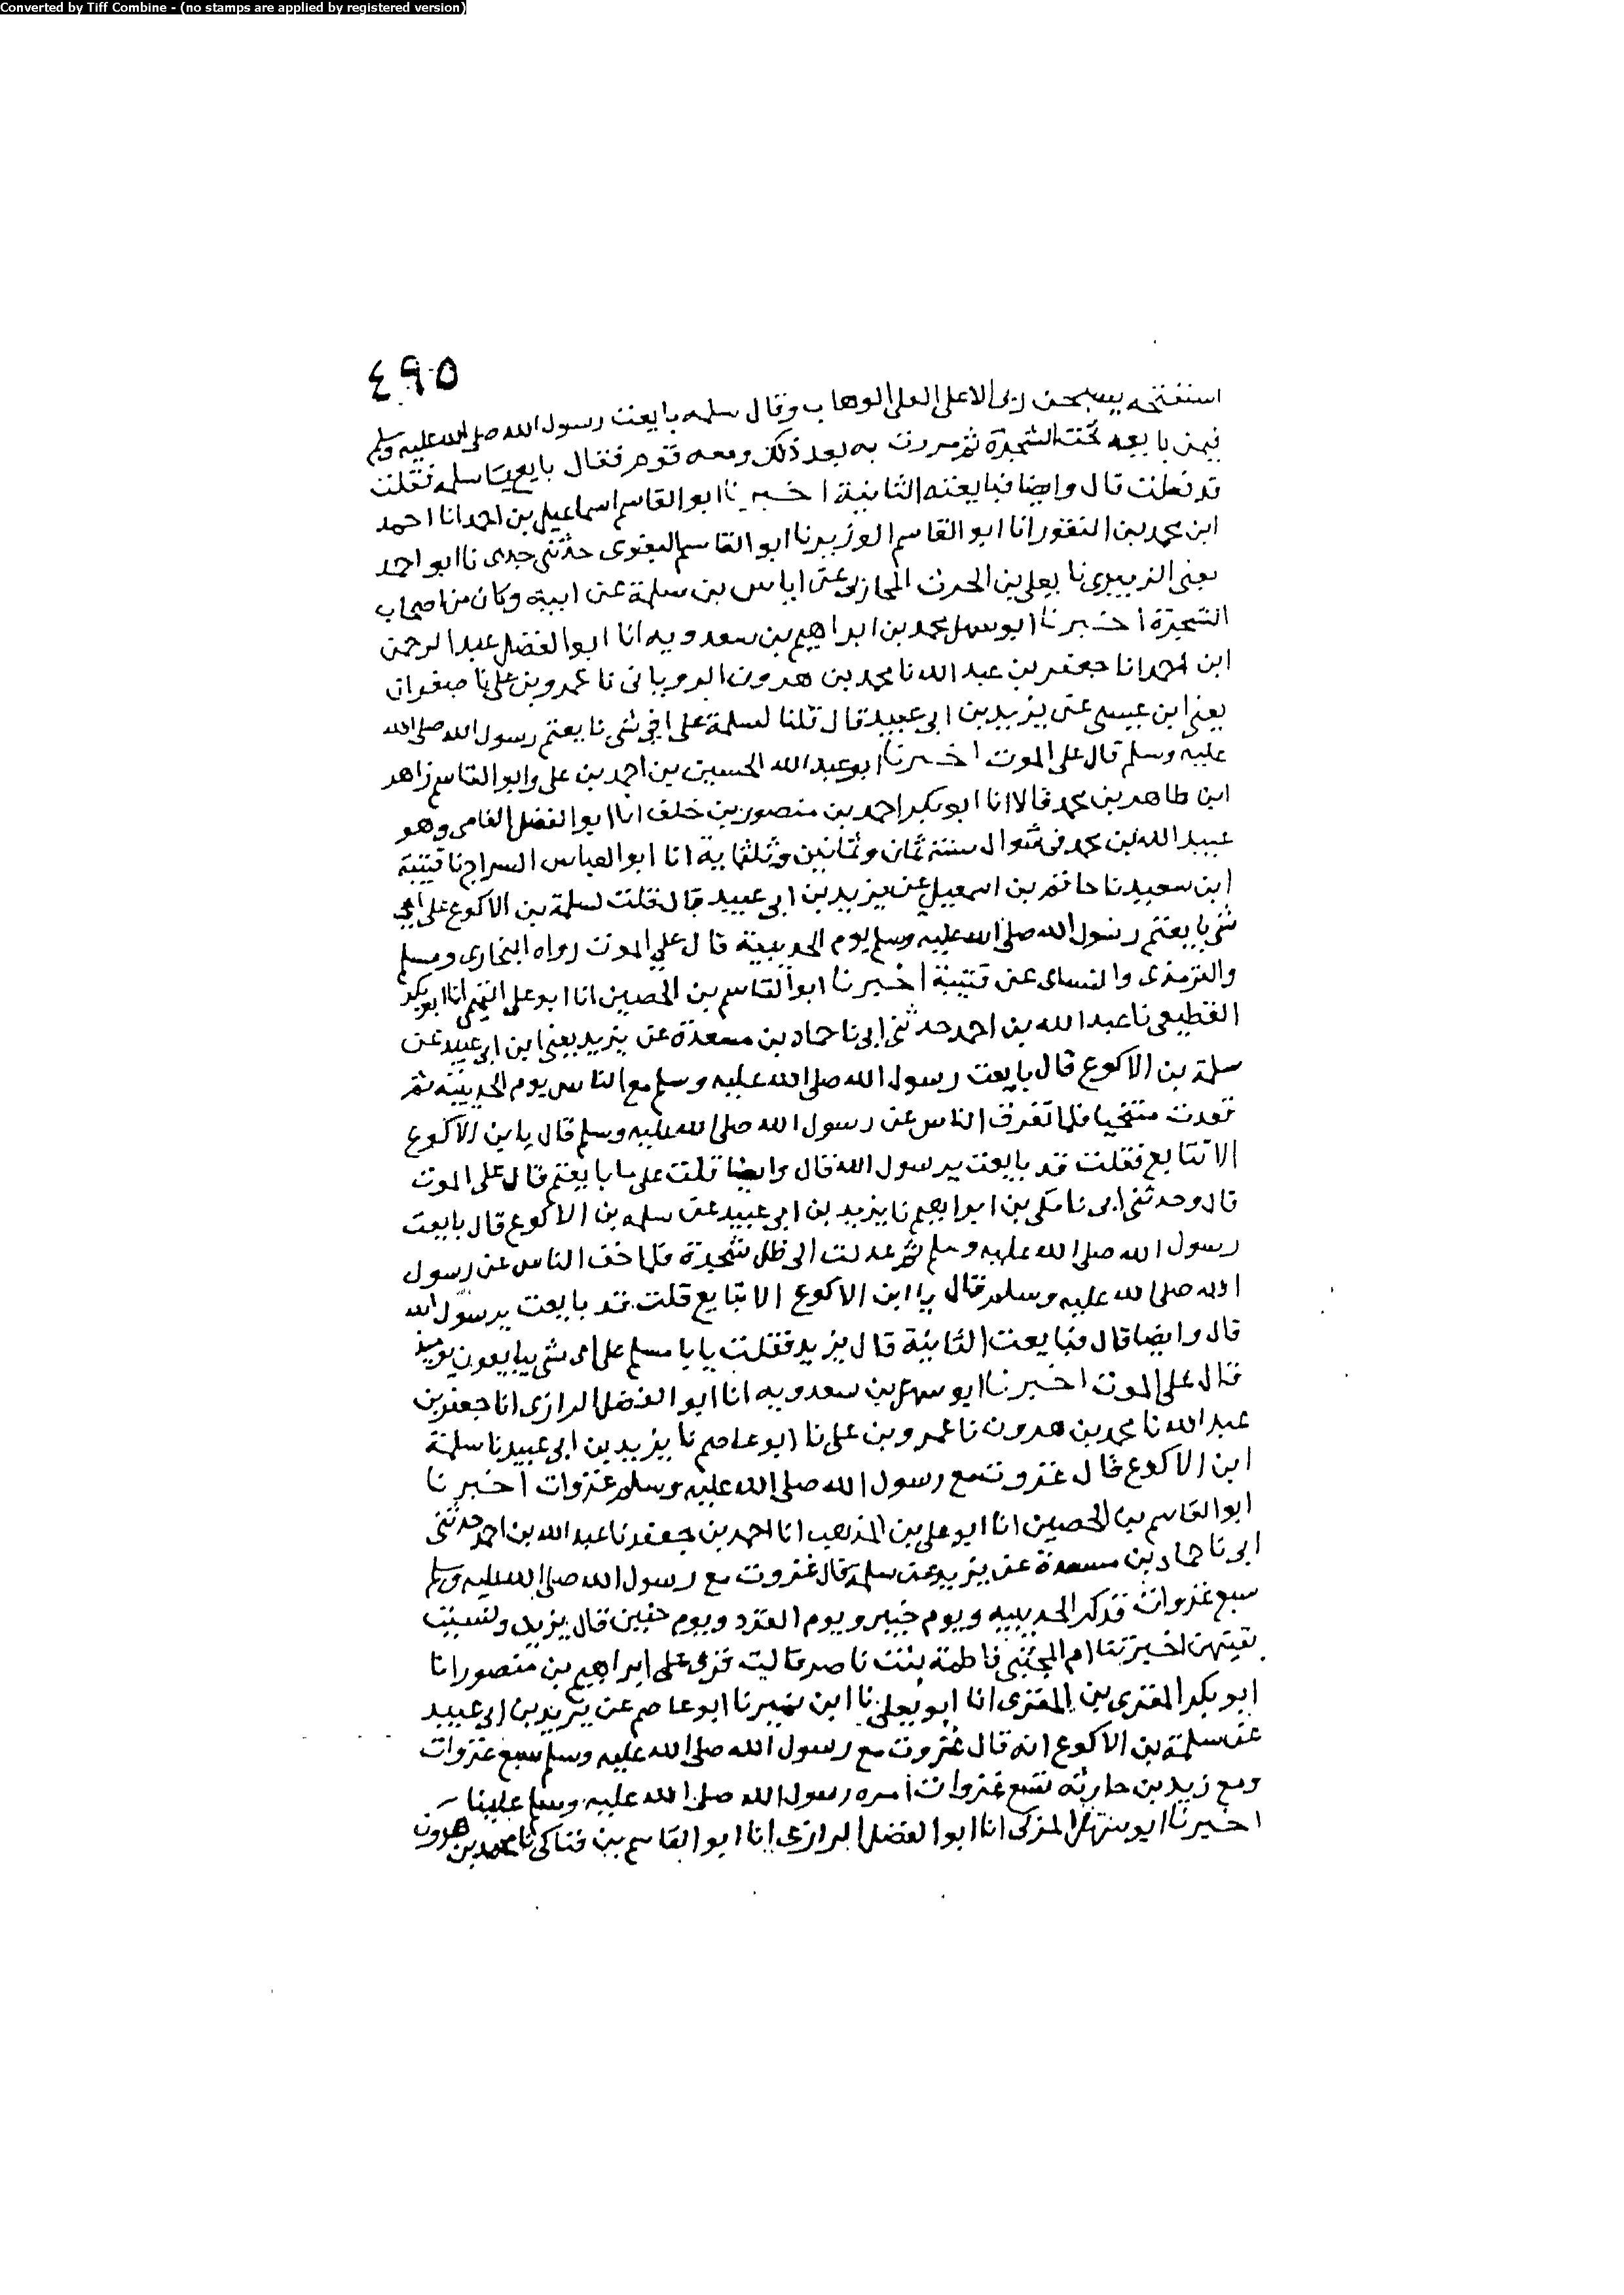 Converted by Tiff Combine - (no stamps are applied by registered version)
٤٩٥
استفتحه بسبحن ربى الاعلى العلى الوهاب وقال سلمه بايعت رسول الله صلى الله عليه وسلم
فيمن بايعه تحت الشجرة ثم مررت به بعد ذلك ومعه قوم فقال بايع يا سلمه فقلت
قد فعلت قال وايضا فبايعته الثانية اخبرنا ابو القاسم اسماعيل بن احمد انا احمد
ابن محمد بن النقور انا ابو القاسم الوزير نا ابو القاسم البغوى حدثنى جدى نا ابو احمد
يعنى الزبيرى نا يعلى بن الحرث المحاربى عن اياس بن سلمة عن ابيه وكان من اصحاب
الشجرة اخبرنا ابو سهل محمد بن ابراهيم بن سعدويه انا ابو الفضل عبد الرحمن
ابن احمد انا جعفر بن عبد الله نا محمد بن هرون الرويانى نا عمرو بن على نا صفوان
يعنى ابن عيسى عن يزيد بن ابى عبيد قال قلنا لسلمة على اى شى بايعتم رسول الله صلى الله
عليه وسلم قال على الموت اخبرنا ابو عبد الله الحسين بن احمد بن على وابو القاسم زاهر
ابن طاهر بن محمد قالا انا ابو بكر احمد بن منصور بن خلف انا ابو الفضل الفامى وهو
عبيد الله بن محمد فى شوال سنة ثمان وثمانين وثلثماية انا ابو العباس السراج نا قتيبة
ابن سعيد نا حاتم بن اسمعيل عن يزيد بن ابى عبيد قال قلت لسلمة بن الاكوع على اى
شى بايعتم رسول الله صلى الله عليه وسلم يوم الحديبية قال على الموت رواه البخارى ومسلم
والترمذى والنساى عن قتيبة اخبرنا ابو القاسم بن الحصين انا ابو على التميمى انا ابو بكر
القطيعى نا عبد الله بن احمد حدثنى ابى نا حماد بن مسعدة عن يزيد يعنى ابن ابى عبيد عن
سلمة بن الاكوع قال بايعت رسول الله صلى الله عليه وسلم مع الناس يوم الحديبية ثم
قعدت متنحيا فلما تفرق الناس عن رسول الله صلى الله عليه وسلم قال يا بن الاكوع
الا تبايع فقلت قد بايعت يرسول الله قال وايضا قلت على ما بايعتم قال على الموت
قال وحدثنى ابى نا مكى بن ابراهيم نا يزيد بن ابى عبيد عن سلمه بن الاكوع قال بايعت
رسول الله صلى الله عليه وسلم ثم عدلت الى ظل شجرة فلما خف الناس عن رسول
الله صلى الله عليه وسلم قال يا ابن الاكوع الا تبايع قلت قد بايعت يرسول الله
قال وايضا قال فبايعت الثانية قال يزيد فقلت يابا مسلم على اى شى يبايعون يوميذ
قال على الموت اخبرنا ابو سهل بن سعدويه انا ابو الفضل الرازى انا جعفر بن
عبد الله نا محمد بن هرون نا عمرو بن على نا ابو عاصم نا يزيد بن ابى عبيد نا سلمة
ابن الاكوع قال غزوت مع رسول الله صلى الله عليه وسلم غزوات اخبرنا
ابو القاسم بن الحصين انا ابو على بن المذهب انا احمد بن جعفر نا عبد الله بن احمد حدثنى
ابى نا حماد بن مسعدة عن يزيد عن سلمة قال غزوت مع رسول الله صلى الله عليه وسلم
سبع غزوات فذكر الحديبيه ويوم خيبر ويوم القرد ويوم حنين قال يزيد ونسيت
بقيتهن اخبرتنا ام المجتبى فاطمة بنت ناصر قالت قرى على ابراهيم بن منصور انا
ابو بكر المقرى بن المقرى انا ابو يعلى نا ابن نمير نا ابو عاصم عن يزيد بن ابى عبيد
عن سلمة بن الاكوع انه قال غزوت مع رسول الله صلى الله عليه وسلم سبع غزوات
ومع زيد بن حارثه تسع غزوات امره رسول الله صلى الله عليه وسلم علينا
اخبرنا ابو سهل المزكى انا ابو الفضل الرازى انا ابو القاسم بن فناكى نا محمد بن هرون